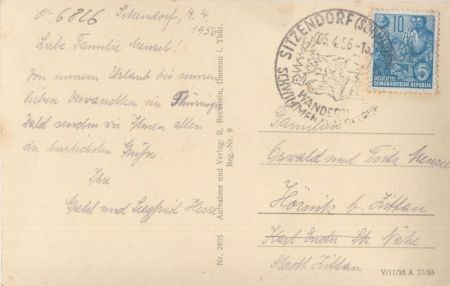 0-6826 Sitzendorf, 4.4.
1956
Liebe Familie Menzel!
Von unserem Urlaub bei unseren
lieben Verwandten im Thüringer
Wald senden wir Ihnen allen
die herzlichsten Grüße.
Ihre
Gretel und Siegfried Hesse
Nr. 2805 Aufnahme und Verlag: R. Bechstein, Ilmenau i. Thür.
Reg.-Nr. 9
SITZENDORF (SCHWARZATAL)
05.4.56-13
WANDERN
10
5
DEUTSCHE
DEMOKRATISCHE REPUBLIK
Familien
Oswald und Fritz Menzel
Hörnitz b. Zittau
Karl Str. Nähe
Stadt Zittau
V/11/28 A 27/55